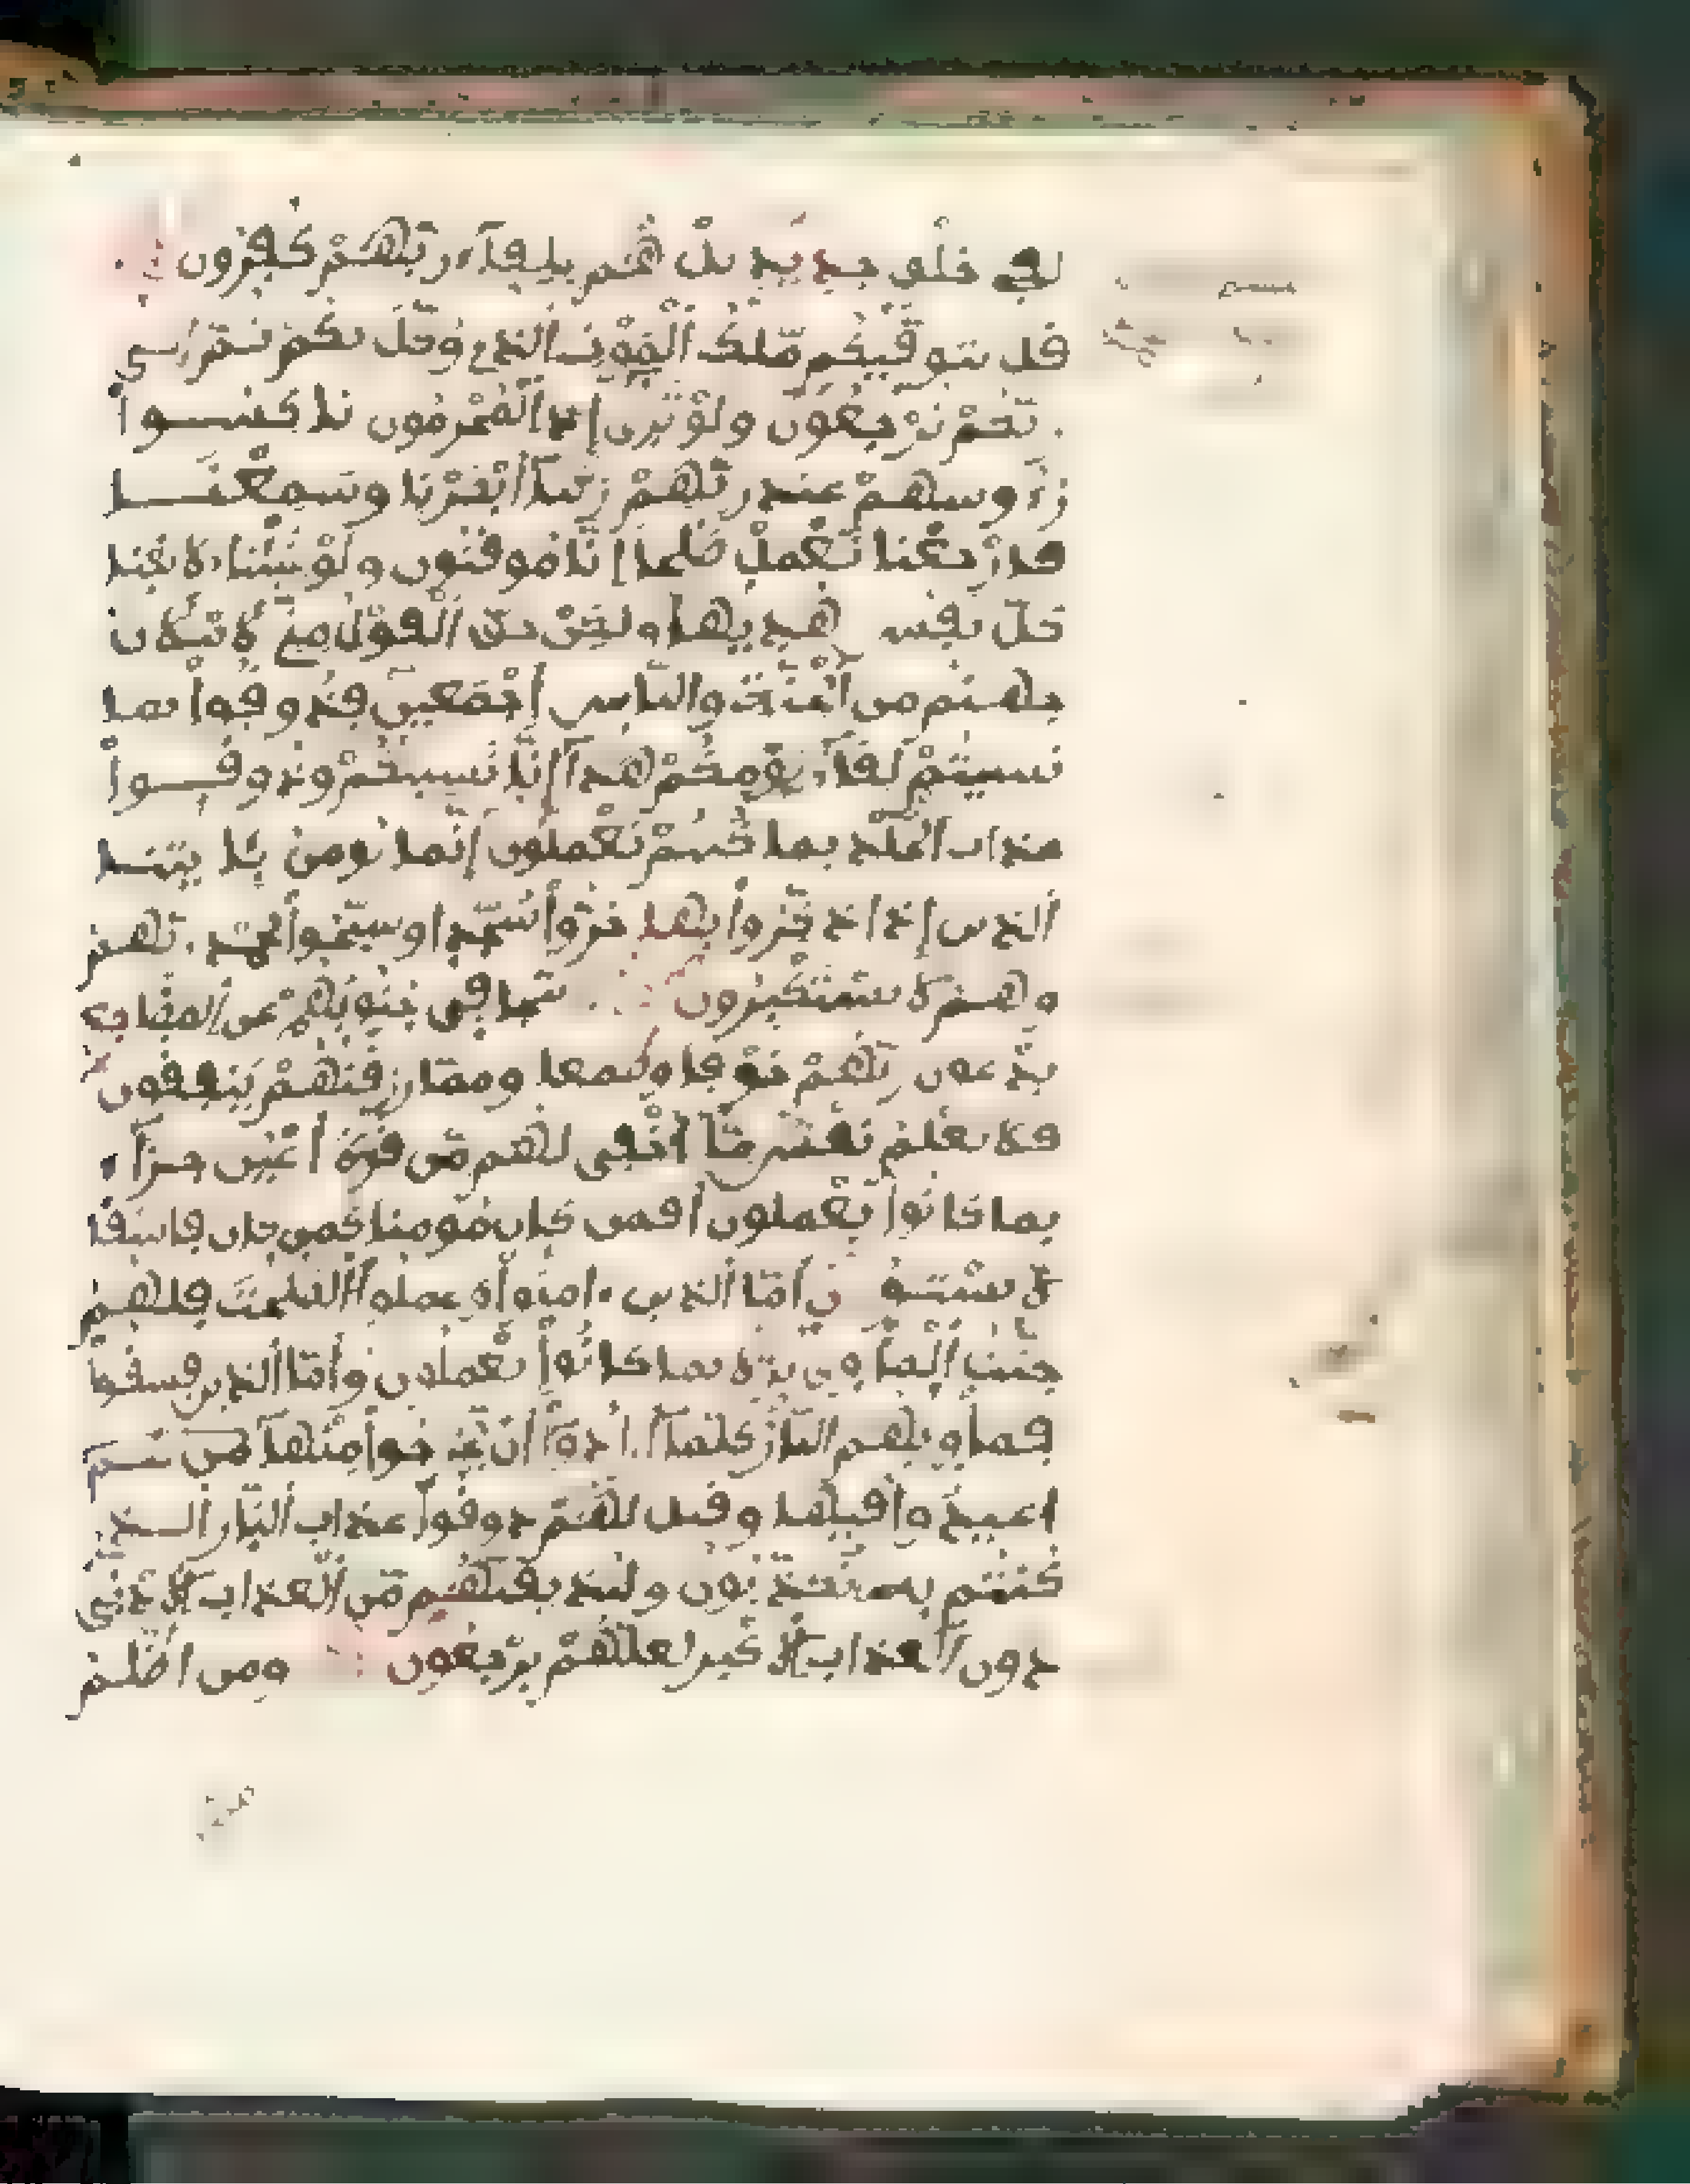 لفى خلق جديد بل هم بلقاء ربهم كفرون
قل يتوفيكم ملك الموت الذى وكل بكم ثم الى
ربكم ترجعون ولو ترى اذ المجرمون ناكسوا
رءوسهم عند ربهم ربنا ابصرنا وسمعنا
فارجعنا نعمل صلحا انا موقنون ولو شئنا لاتينا
كل نفس هديها ولكن حق القول منى لاملأن
جهنم من الجنة والناس اجمعين فذوقوا بما
نسيتم لقاء يومكم هذا انا نسينكم وذوقوا
عذاب الخلد بما كنتم تعملون انما يومن بايتنا
الذين اذا ذكروا بها خروا سجدا وسبحوا بحمد ربهم
وهم لا يستكبرون تتجافى جنوبهم عن المضاجع
يدعون ربهم خوفا وطمعا ومما رزقنهم ينفقون
فلا تعلم نفس ما اخفى لهم من قرة اعين جزاء
بما كانوا يعملون افمن كان مومنا كمن كان فاسقا
لا يستون اما الذين ءامنوا وعملوا الصلحت فلهم
جنت المأوى نزلا بما كانوا يعملون واما الذين فسقوا
فمأويهم النار كلما ارادوا ان يخرجوا منها من غم
اعيدوا فيها وقيل لهم ذوقوا عذاب النار الذى
كنتم به تكذبون ولنذيقنهم من العذاب الادنى
دون العذاب الاكبر لعلهم يرجعون ومن اظلم